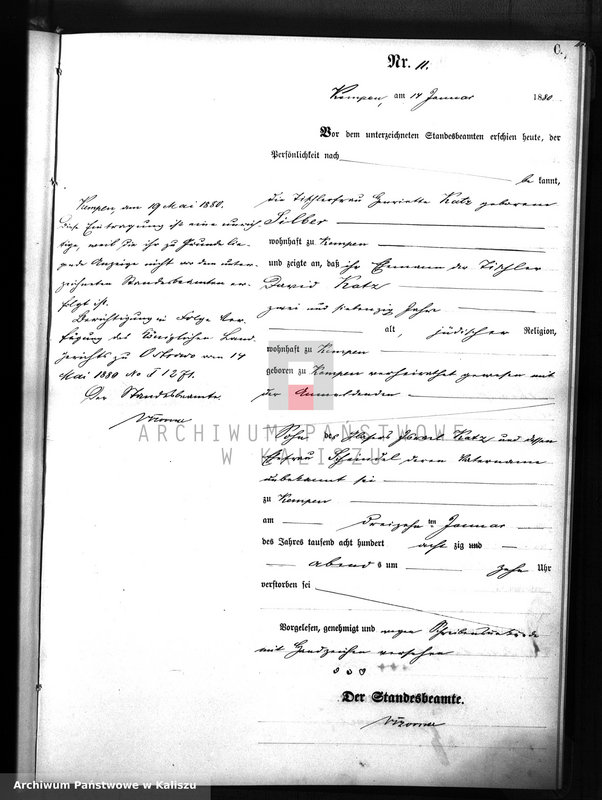 C.
Nr. 11.
Kempen, am 14 Januar 1880
Vor dem unterzeichneten Standesbeamten erschien heute, der
Persönlichkeit nach
be kannt,
die Tischlerfrau Henriette Katz geborene
Silber
wohnhaft zu Kempen
und zeigte an, daß ihr Ehemann der Tischler
David Katz
zwei und siebenzig Jahre
alt, jüdischer Religion,
wohnhaft zu Kempen
geboren zu Kempen verheirathet gewesen mit
der Anmeldenden
Sohn des Katz und dessen
Ehefrau Scheindel deren Vatername
unbekannt sei
zu Kempen
am dreizehn ten Januar
des Jahres tausend acht hundert acht zig und
abend s um zehn Uhr
verstorben sei
Vorgelesen, genehmigt und wegen Schreibensunkunde
mit Handzeichen versehen
Der Standesbeamte.
Kempen, am 19 Mai 1880.
Diese Eintragung ist eine unrich
tige, weil die ihr zu Grunde lie-
gende Anzeige nicht vor dem unter-
zeichneten Standesbeamten er-
folgt ist.
Berichtigung in Folge Ver-
fügung des Königlichen Land
gerichts zu Ostrowo vom 14
Mai 1880 No
Der Standesbeamte.
ARCHIWUM PAŃSTWOWE
W KALISZU
Archiwum Państwowe w Kaliszu